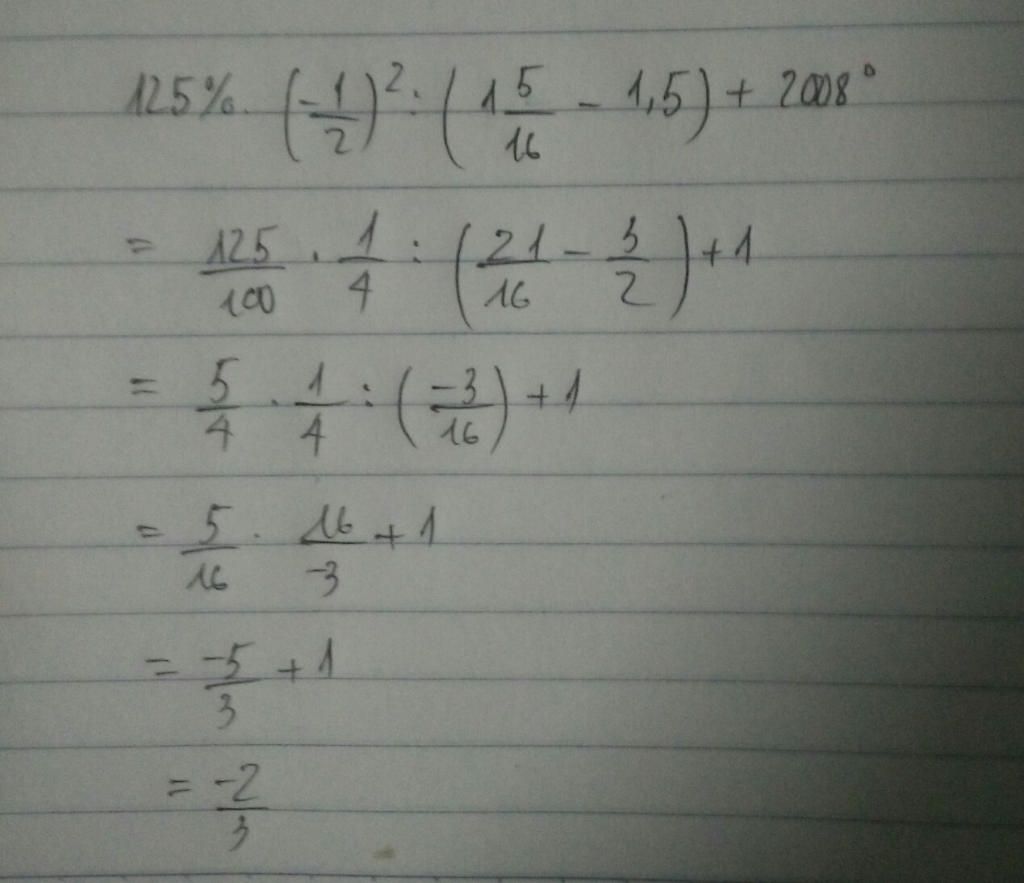 125%. (-1/2)² : (1 5/16 - 1,5) + 2008°
= 125/100 . 1/4 : (21/16 - 3/2) + 1
= 5/4 . 1/4 : (-3/16) + 1
= 5/16 . 16/-3 + 1
= -5/3 + 1
= -2/3